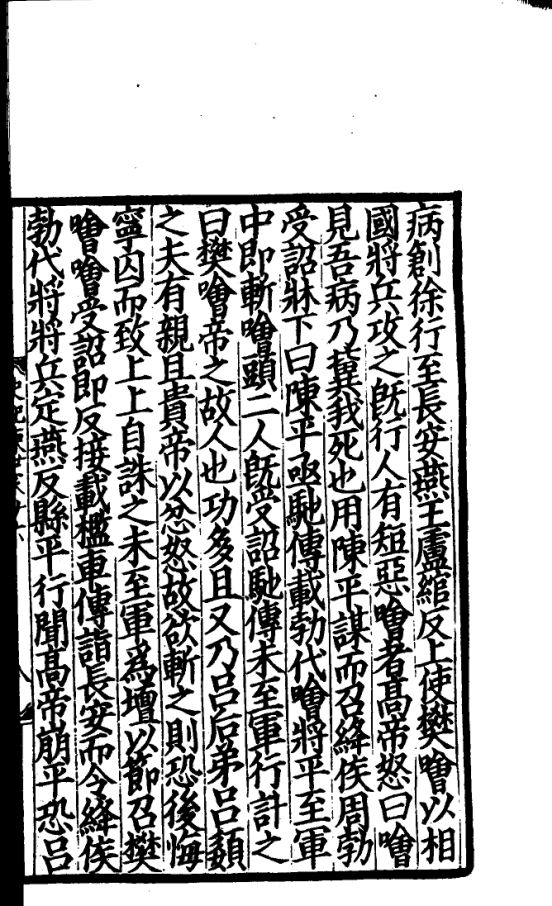 病創徐行至長安燕王盧綰反上使樊噲以相
國將兵攻之旣行人有短惡噲者髙帝怒曰噲
見吾病乃兾我死也用陳平謀而召絳侯周勃
受詔牀下曰陳平亟馳傳載勃代噲將平至軍
中即斬噲頭二人旣受詔馳傳未至軍行計之
曰樊噲帝之故人也功多且又乃吕后弟吕嬃
之夫有親且貴帝以忿怒故欲斬之則恐後悔
寧囚而致上上自誅之未至軍爲壇以節召樊
噲噲受詔即反接載檻車傳詣長安而令絳侯
勃代將將兵定燕反縣平行聞髙帝崩平恐吕